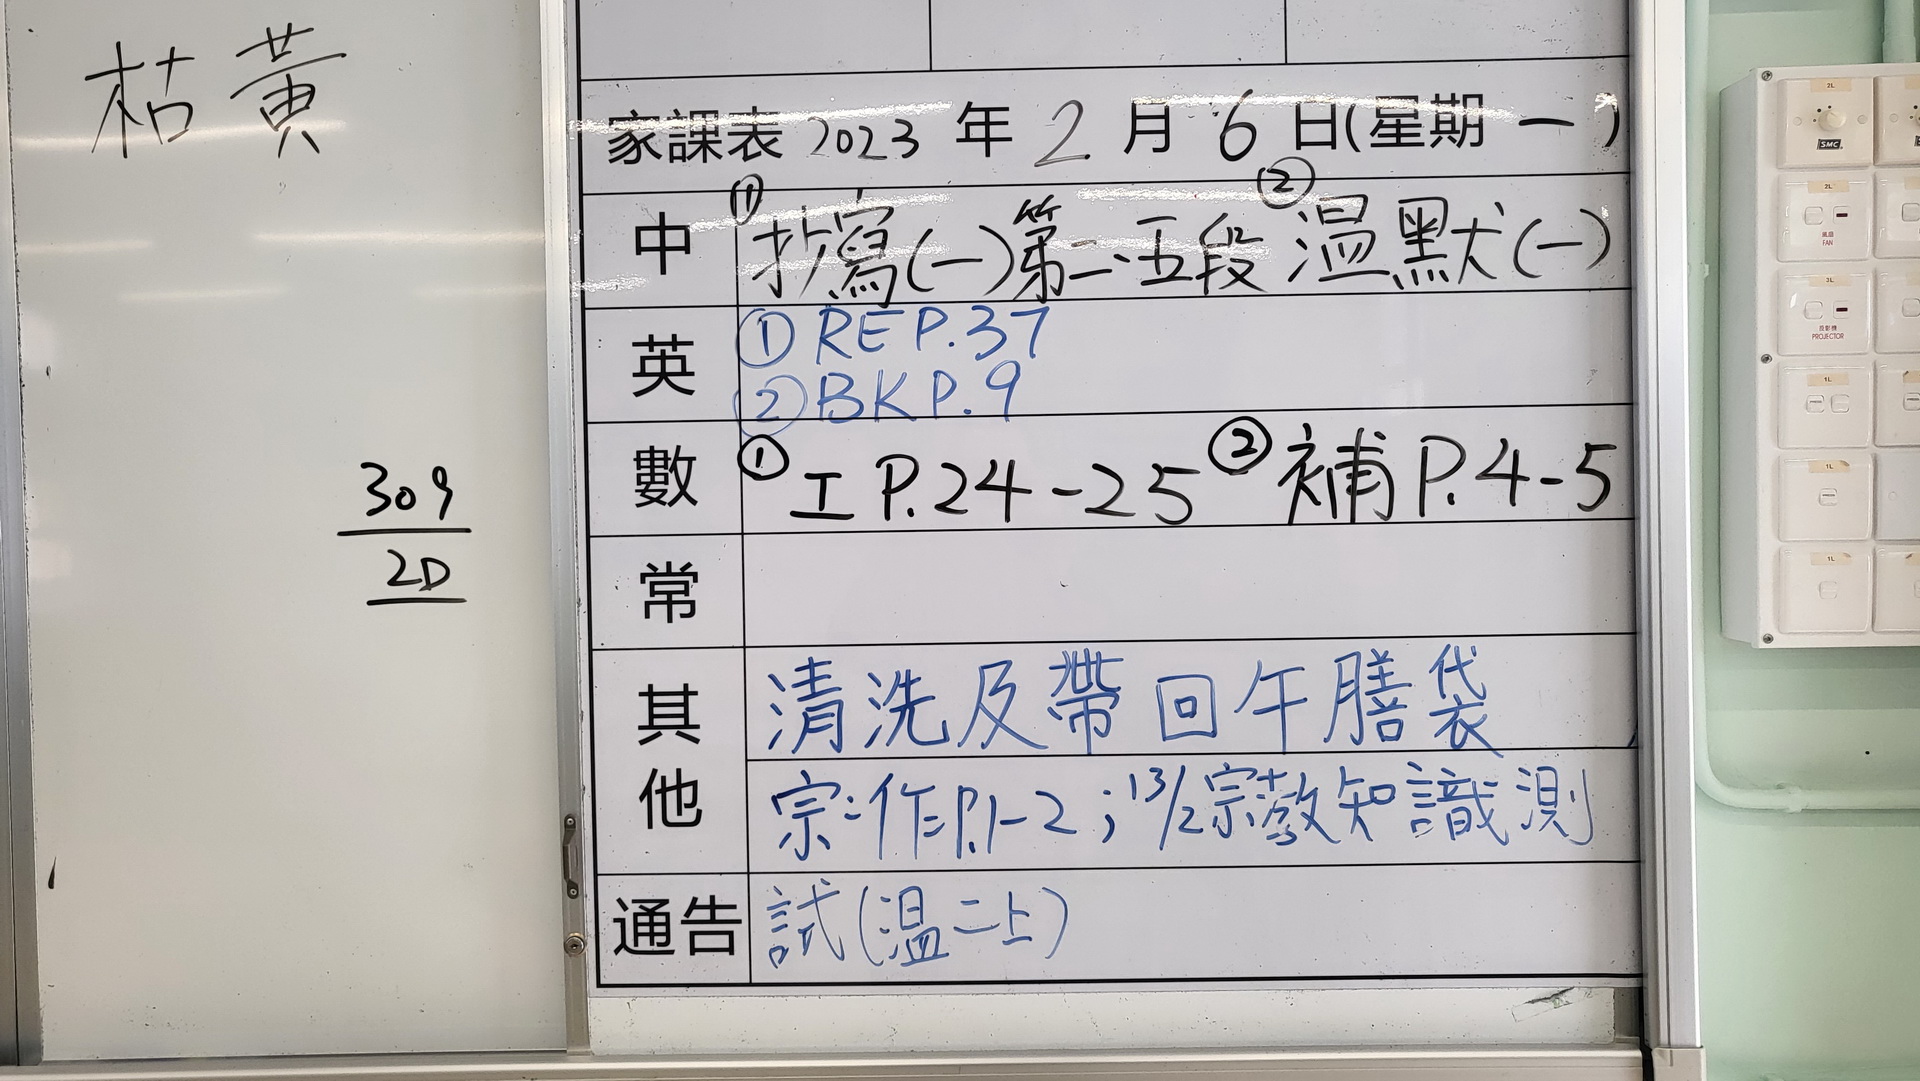 枯黃
309
2D
家課表 2023 年 2 月 6 日(星期 一)
中 ① 抄寫(一)第二、五段 ② 溫默(一)
英 ① RE P.37
② BK P.9
數 ① 工 P.24-25 ② 補 P.4-5
常
其他 清洗及帶回午膳袋
宗:作P.1-2;13/2宗教知識測
通告 試(溫二上)
2L
SMC
2L
風扇
FAN
3L
投影機
PROJECTOR
1L
1L
1L